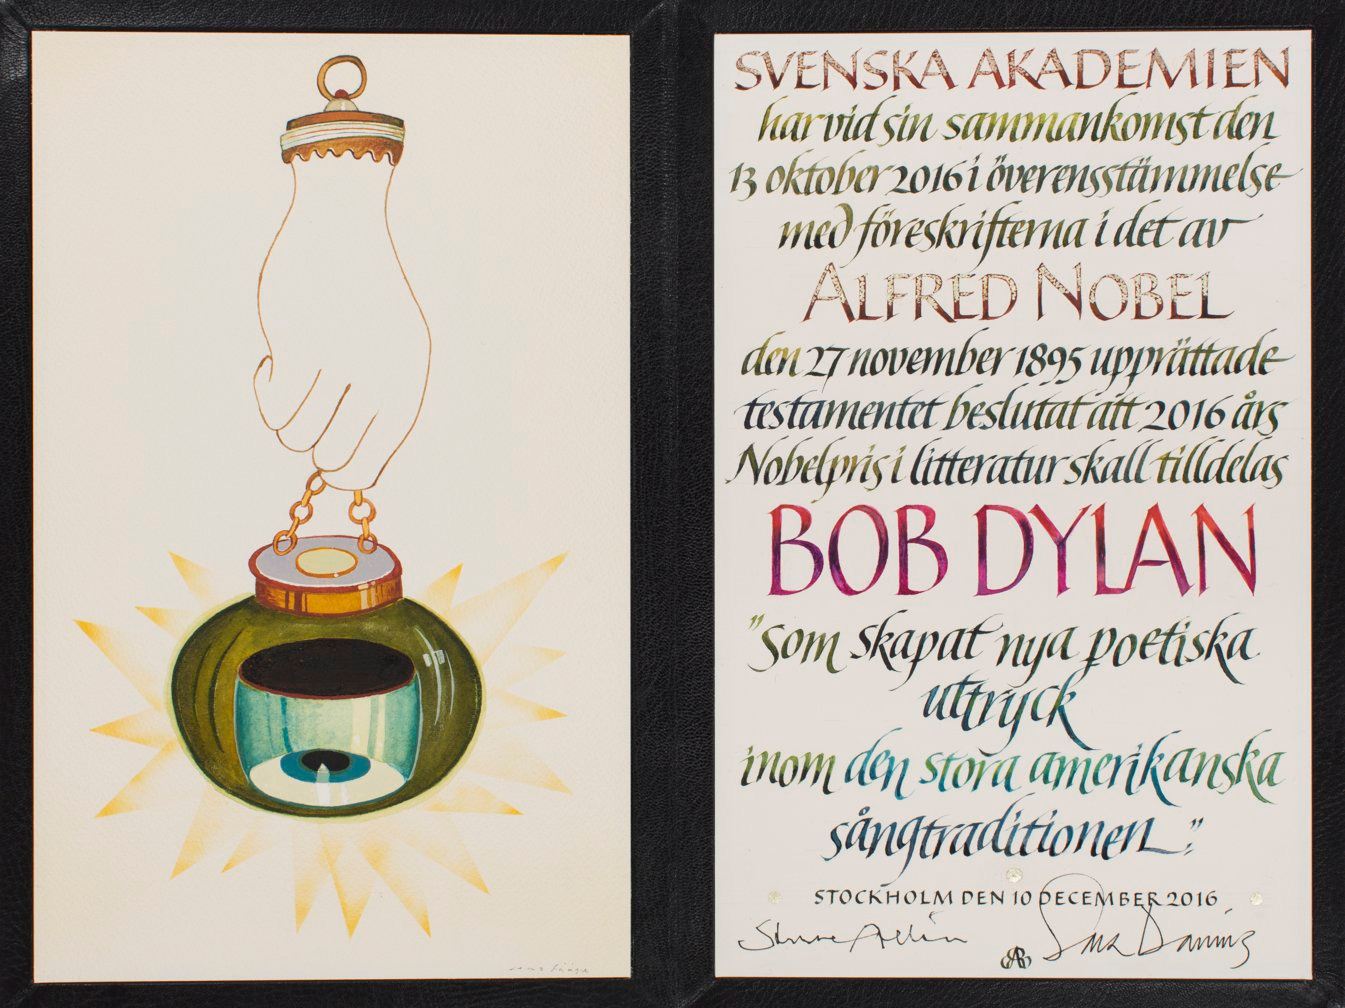 SVENSKA AKADEMIEN
har vid sin sammankomst den
13 oktober 2016 i överensstämmelse
med föreskrifterna i det av
ALFRED NOBEL
den 27 november 1895 upprättade
testamentet beslutat att 2016 års
Nobelpris i litteratur skall tilldelas
BOB DYLAN
"som skapat nya poetiska
uttryck
inom den stora amerikanska
sångtraditionen."
STOCKHOLM DEN 10 DECEMBER 2016
Sture Allén Sara Danius